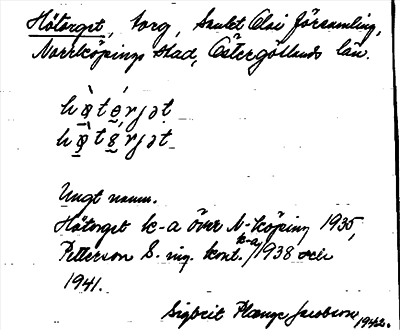 Hötorget, torg, Sankt Olai församling,
Norrköpings stad, Östergötlands län.
hø̀tǫ́rjət
hø̀tǫ́rjət
Ungt namn.
Hötorget k-a över N-köping 1935,
Petterson S. ing. kont. k-a/1938 och
1941.
Sigbrit Plænge Jacobson 1942.